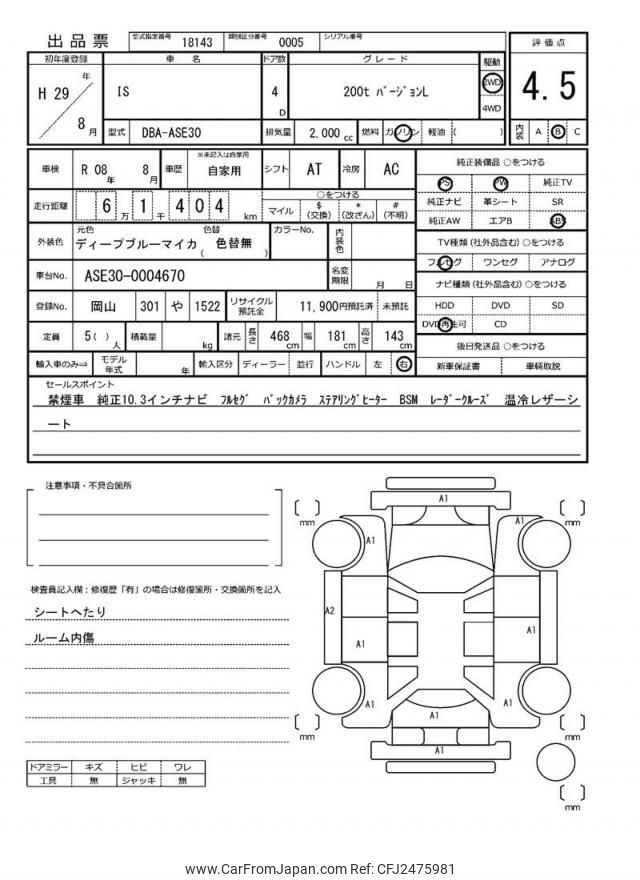 出品票 型式指定番号 18143 類別区分番号 0005 シリアル番号
初年度登録 車名 ドア数 グレード 駆動 評価点
H 29 年 8 月 IS 4 D 200t バージョンL 2WD 4WD 4.5
型式 DBA-ASE30 排気量 2,000 cc 燃料 ガソリン 軽油 ( ) 内装 A B C
車検 R 08 年 8 月 車歴 ※未記入は自家用 自家用 シフト AT 冷房 AC
走行距離 6 万 1 千 4 0 4 km ○をつける マイル $ (交換) * (改ざん) # (不明)
外装色 元色 ディープブルーマイカ 色替 ( 色替無 ) カラーNo. 内装色
車台No. ASE30-0004670 名変期限 月 日
登録No. 岡山 301 や 1522 リサイクル預託金 11,900円預託済 未預託
定員 5( ) 人 積載量 kg 諸元 長さ 468 cm 幅 181 cm 高さ 143 cm
輸入車のみ⇒ モデル年式 年 輸入区分 ディーラー 並行 ハンドル 左 右
純正装備品 ○をつける
PS PW 純正TV
純正ナビ 革シート SR
純正AW エアB ABS
TV種類 (社外品含む) ○をつける
フルセグ ワンセグ アナログ
ナビ種類 (社外品含む) ○をつける
HDD DVD SD
DVD再生可 CD
後日発送品 ○をつける
新車保証書 車輌取説
セールスポイント
禁煙車 純正10.3インチナビ フルセグ バックカメラ ステアリングヒーター BSM レーダークルーズ 温冷レザーシ
ート
注意事項・不具合箇所
検査員記入欄:修復歴「有」の場合は修復箇所・交換箇所を記入
シートへたり
ルーム内傷
ドアミラー キズ ヒビ ワレ
工具 無 ジャッキ 無
A1
[ ] mm A1 A1 [ ] mm
A2 A1 A1
A1 A1 A1
[ ] mm A1 [ ] mm
[ ] mm
www.CarFromJapan.com Ref: CFJ2475981